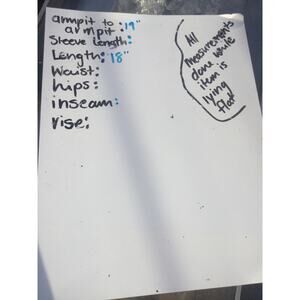 armpit to : 19"
armpit
Sleeve Length:
Length: 18"
Waist:
hips:
inseam:
rise:
All
measurements
done while
item is
lying
flat